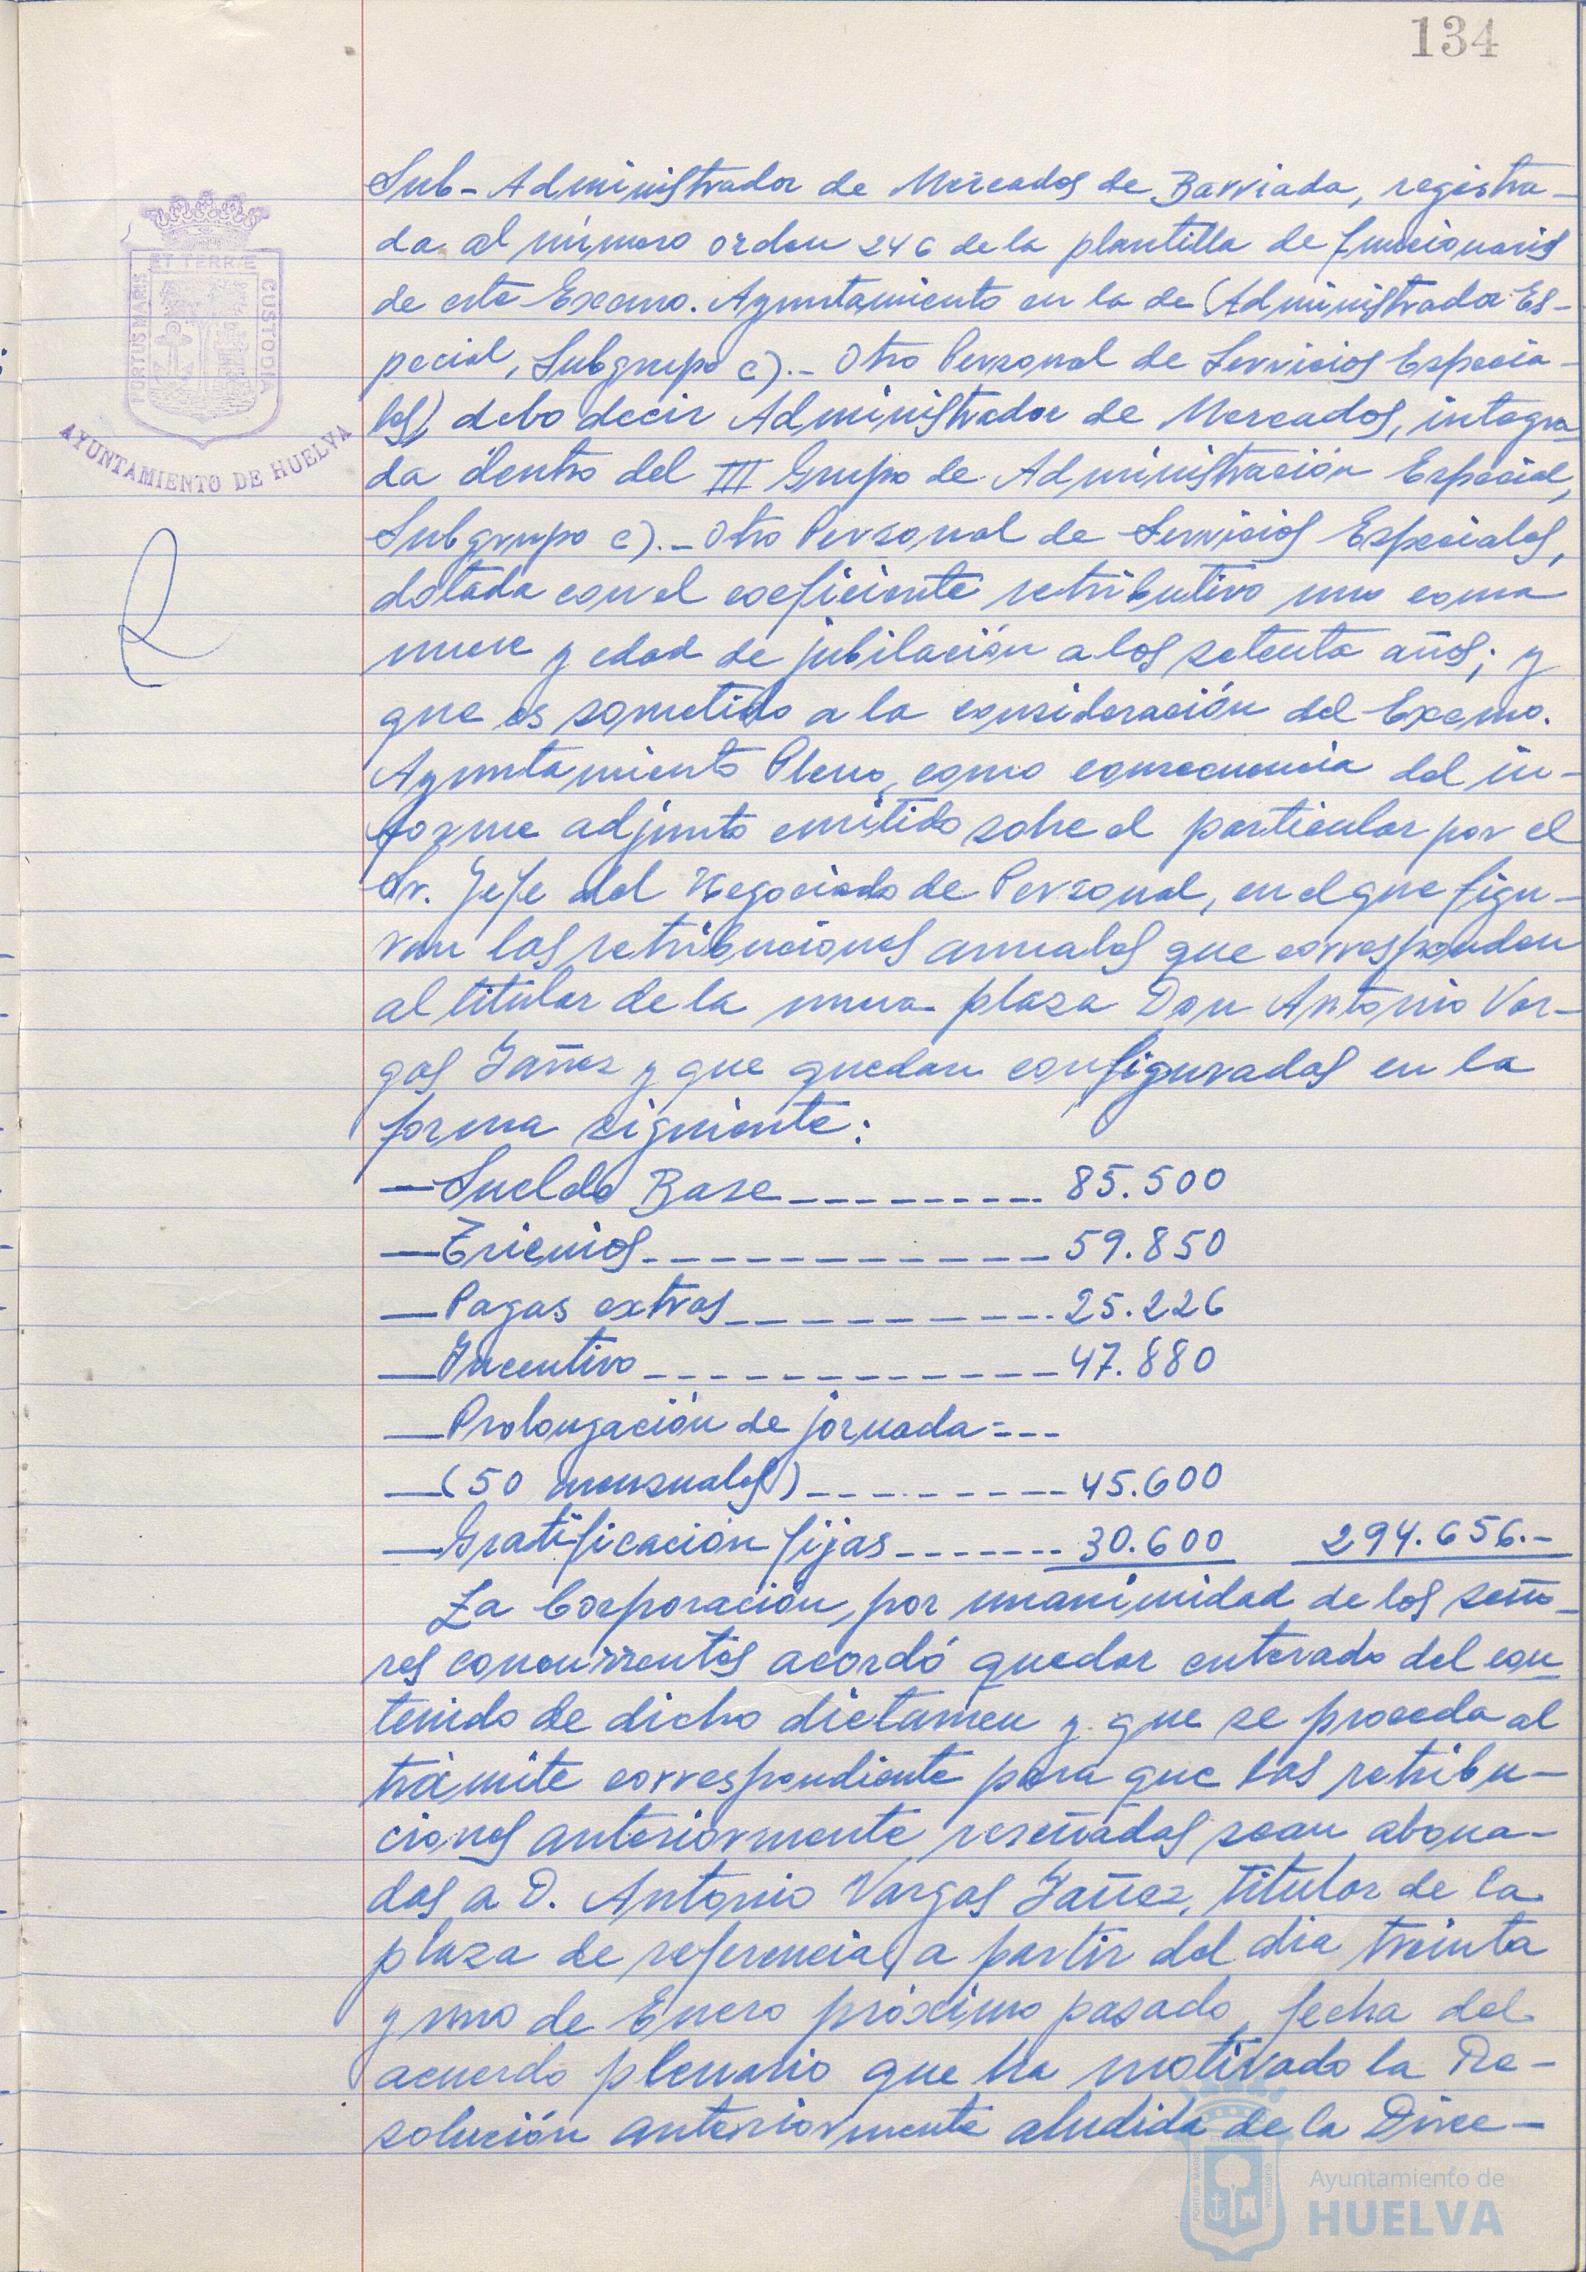 134
ET TERRE
PORTUS MARIS
CUSTODIA
AYUNTAMIENTO DE HUELVA
Sub-Administrador de Mercados de Barriada, registra-
da al número orden 246 de la plantilla de funcionarios
de este Excmo. Ayuntamiento en la de (Administrador Es-
pecial, Subgrupo c).- Otro Personal de Servicios Especia-
les) debo decir Administrador de Mercados, integra-
da dentro del III Grupo de Administración Especial,
Subgrupo c).- Otro Personal de Servicios Especiales,
dotada con el coeficiente retributivo uno coma
nueve y edad de jubilación a los setenta años; y
que es sometido a la consideración del Excmo.
Ayuntamiento Pleno, como consecuencia del in-
forme adjunto emitido sobre el particular por el
Sr. Jefe del Negociado de Personal, en el que figu-
ran las retribuciones anuales que corresponden
al titular de la nueva plaza Don Antonio Var-
gas Yañez y que quedan configuradas en la
forma siguiente:
—Sueldo Base--------- 85.500
—Trienios------------ 59.850
—Pagas extras----------25.226
—Incentivo------------47.880
—Prolongación de jornada=---
—(50 mensuales)---------45.600
—Gratificación fijas------- 30.600 294.656.-
La Corporación, por unanimidad de los seño-
res concurrentes acordó quedar enterado del con-
tenido de dicho dictamen y que se proceda al
trámite correspondiente para que las retribu-
ciones anteriormente reseñadas sean abona-
das a D. Antonio Vargas Yañez, titular de la
plaza de referencia, a partir del dia treinta
y uno de Enero próximo pasado, fecha del
acuerdo plenario que ha motivado la Re-
solución anteriormente aludida de la Direc-
Ayuntamiento de
HUELVA